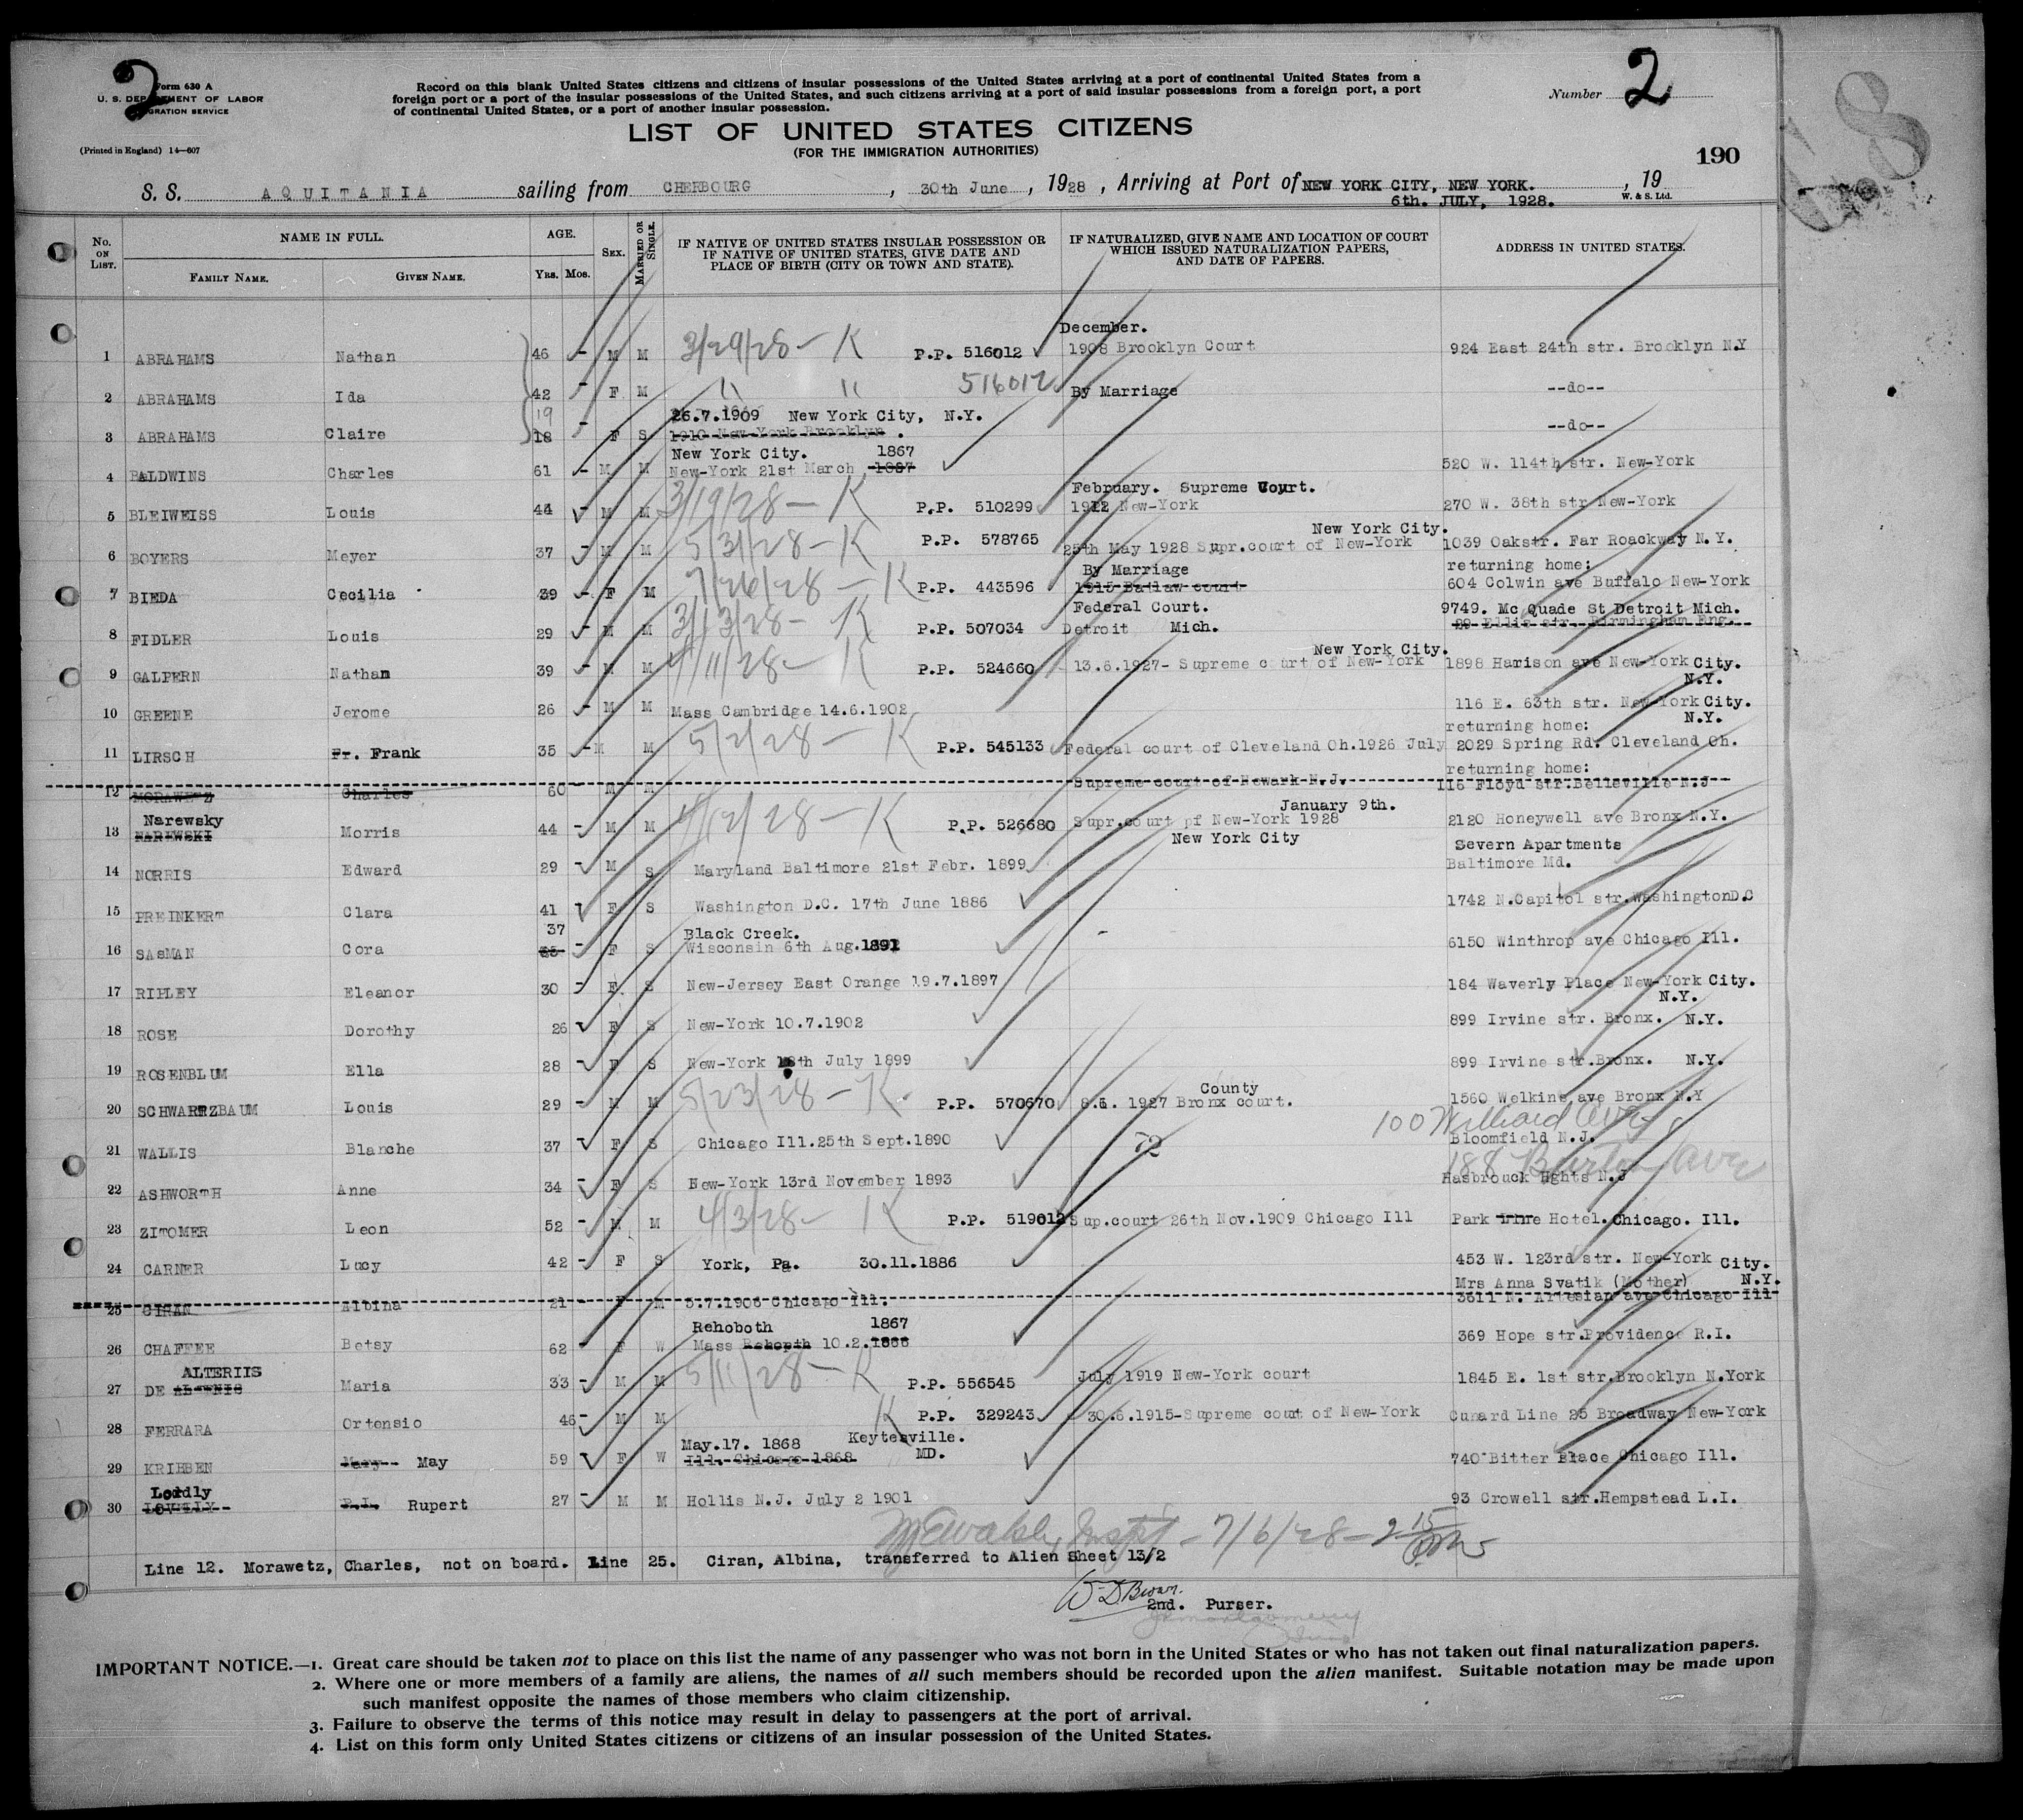 2
Form 630 A
U. S. DEPARTMENT OF LABOR
IMMIGRATION SERVICE
(Printed in England) 14—607
Record on this blank United States citizens and citizens of insular possessions of the United States arriving at a port of continental United States from a
foreign port or a port of the insular possessions of the United States, and such citizens arriving at a port of said insular possessions from a foreign port, a port
of continental United States, or a port of another insular possession.
Number 2
LIST OF UNITED STATES CITIZENS
(FOR THE IMMIGRATION AUTHORITIES)
190
S. S. AQUITANIA sailing from CHERBOURG , 30th June , 1928 , Arriving at Port of NEW YORK CITY, NEW YORK. , 19
6th. JULY, 1928.
W. & S. Ltd.
No. ON LIST. NAME IN FULL. FAMILY NAME. GIVEN NAME. AGE. YRS. MOS. SEX. MARRIED OR SINGLE. IF NATIVE OF UNITED STATES INSULAR POSSESSION OR IF NATIVE OF UNITED STATES, GIVE DATE AND PLACE OF BIRTH (CITY OR TOWN AND STATE). IF NATURALIZED, GIVE NAME AND LOCATION OF COURT WHICH ISSUED NATURALIZATION PAPERS, AND DATE OF PAPERS. ADDRESS IN UNITED STATES.
December.
1 ABRAHAMS Nathan 46 - M M 3/29/28 - K P.P. 516012 1908 Brooklyn Court 924 East 24th str. Brooklyn N.Y
2 ABRAHAMS Ida 42 - F M " " 516012 By Marriage --do--
19 26.7.1909 New York City, N.Y.
3 ABRAHAMS Claire 18 - F S 1910 New-York Brooklyn . --do--
New York City. 1867
4 BALDWINS Charles 61 - M M New-York 21st March 1887 520 W. 114th str. New-York
February. Supreme Court.
5 BLEIWEISS Louis 44 M M 3/19/28 - K P.P. 510299 1912 New-York 270 W. 38th str New-York
New York City.
6 BOYERS Meyer 37 M M 5/31/28 - K P.P. 578765 25th May 1928 Supr.court of New-York 1039 Oakstr. Far Roackway N.Y.
By Marriage returning home:
7 BIEDA Cecilia 39 - F M 7/26/28 - K P.P. 443596 1915 Batlaw court 604 Colwin ave Buffalo New-York
Federal Court. 9749. Mc Quade St Detroit Mich.
8 FIDLER Louis 29 M M 3/13/28 - K P.P. 507034 Detroit Mich. 29 Ellis str. Birmingham Eng.
New York City.
9 GALPERN Nathan 39 - M M 4/11/28 - K P.P. 524660 13.6.1927- Supreme court of New-York 1898 Harison ave New-York City.
N.Y.
10 GREENE Jerome 26 - M M Mass Cambridge 14.6.1902 116 E. 63th str. New-York City.
returning home: N.Y.
11 LIRSCH Fr. Frank 35 - M M 5/2/28 - K P.P. 545133 Federal court of Cleveland Oh.1926 July 2029 Spring Rd. Cleveland Oh.
returning home:
12 MORAWETZ Charles 60 - M M Supreme court of Newark N.J. 116 Floyd str.Belleville N.J
Narewsky January 9th.
13 NAREWSKI Morris 44 - M M 4/12/28 - K P.P. 526680 Supr.court pf New-York 1928 2120 Honeywell ave Bronx N.Y.
New York City Severn Apartments
14 NORRIS Edward 29 M S Maryland Baltimore 21st Febr. 1899 Baltimore Md.
15 PREINKERT Clara 41 F S Washington D.C. 17th June 1886 1742 N.Capitol str.WashingtonD.C
37 Black Creek.
16 SASMAN Cora 35 - F S Wisconsin 6th Aug.1891 6150 Winthrop ave Chicago Ill.
17 RIPLEY Eleanor 30 - F S New-Jersey East Orange 19.7.1897 184 Waverly Place New-York City.
N.Y.
18 ROSE Dorothy 26 F S New-York 10.7.1902 899 Irvine str. Bronx. N.Y.
19 ROSENBLUM Ella 28 - F S New-York 18th July 1899 899 Irvine str.Bronx. N.Y.
County
20 SCHWARTZBAUM Louis 29 - M M 5/23/28 - K. P.P. 570670 8.6. 1927 Bronx court. 1560 Welkins ave Bronx N.Y
100 Williard Ave
21 WALLIS Blanche 37 F S Chicago Ill.25th Sept.1890 72 Bloomfield N.J.
188 Burton Ave
22 ASHWORTH Anne 34 - F S New-York 13rd November 1893 Hasbrouck Hghts N.J
23 ZITOMER Leon 52 - M M 4/3/28 - K P.P. 519012 Sup.court 26th Nov.1909 Chicago Ill Park Hotel. Chicago. Ill.
24 CARNER Lucy 42 - F S York, Pa. 30.11.1886 453 W. 123rd str. New-York City.
Mrs Anna Svatik (Mother) N.Y.
25 CIRAN Albina 21 - F M 5.7.1906 Chicago Ill. 3611 N. Artesian ave Chicago Ill
Rehoboth 1867
26 CHAFFEE Betsy 62 - F W Mass Rehopth 10.2.1866 369 Hope str.Providence R.I.
ALTERIIS
27 DE Maria 33 - M M 5/11/28 - K P.P. 556545 July 1919 New-York court 1845 E. 1st str.Brooklyn N.York
28 FERRARA Ortensio 46 - M M K P.P. 329243 30.6.1915-Supreme court of New-York Cunard Line 25 Broadway New-York
May.17. 1868 Keytesville.
29 KRIBBEN Mary May 59 F W Ill. Chicago 1868 MD. 740 Bitter Place Chicago Ill.
Lordly
30 LOVELLY R.I. Rupert 27 - M M Hollis N.J. July 2 1901 93 Crowell str.Hempstead L.I.
Walsh, Inspt - 7/6/28 - 2 15 PM
Line 12. Morawetz, Charles, not on board. Line 25. Ciran, Albina, transferred to Alien Sheet 13/2
W D Brown.
2nd. Purser.
IMPORTANT NOTICE.—1. Great care should be taken not to place on this list the name of any passenger who was not born in the United States or who has not taken out final naturalization papers.
2. Where one or more members of a family are aliens, the names of all such members should be recorded upon the alien manifest. Suitable notation may be made upon
such manifest opposite the names of those members who claim citizenship.
3. Failure to observe the terms of this notice may result in delay to passengers at the port of arrival.
4. List on this form only United States citizens or citizens of an insular possession of the United States.